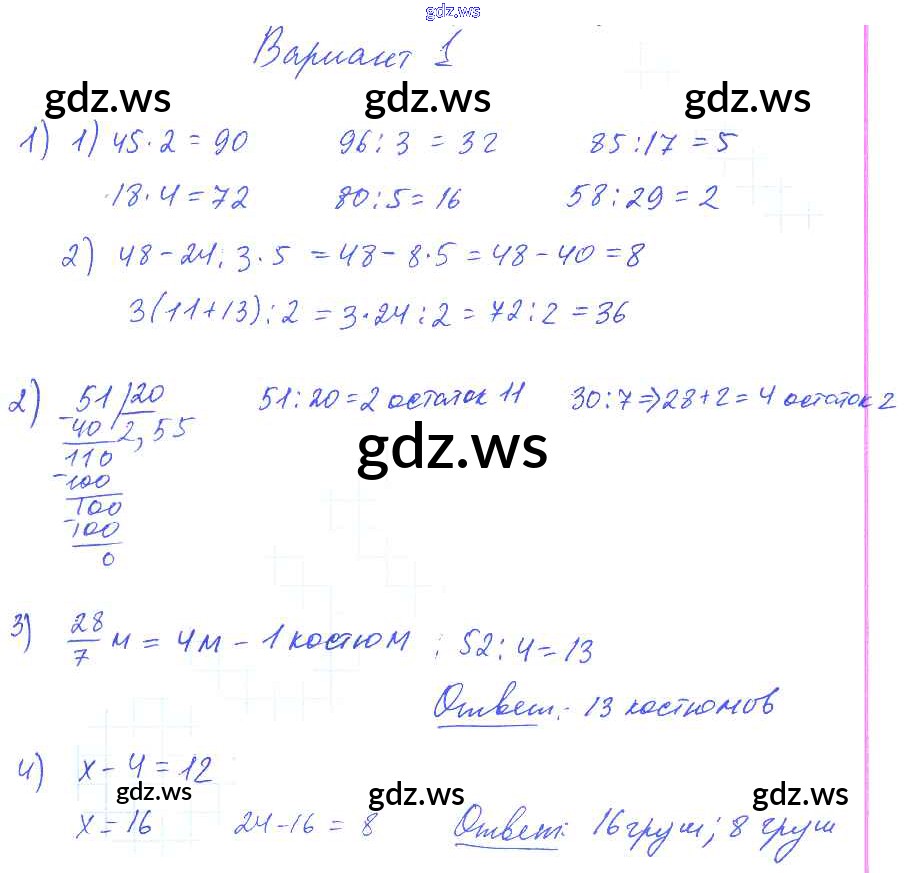 gdz.ws
Вариант 1
gdz.ws gdz.ws gdz.ws
1) 1) 45·2=90 96:3=32 85:17=5
18·4=72 80:5=16 58:29=2
2) 48-24:3·5=48-8·5=48-40=8
3(11+13):2=3·24:2=72:2=36
2) 51|20 51:20=2 остаток 11 30:7⇒28+2=4 остаток 2
-40 2,55
gdz.ws
110
-100
100
-100
0
3) 28/7 м = 4м - 1 костюм ; 52:4=13
Ответ: 13 костюмов
4) x-4=12
gdz.ws gdz.ws gdz.ws
x=16 24-16=8 Ответ: 16 груш; 8 груш